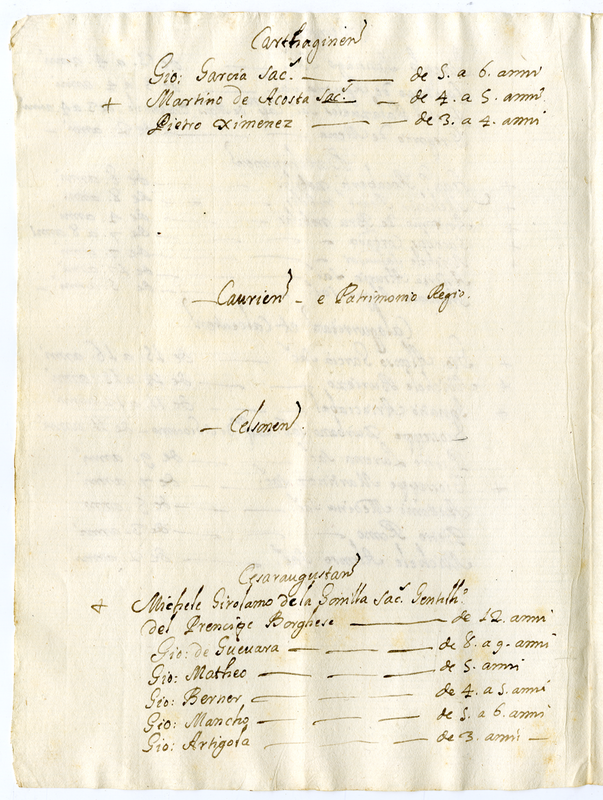 Carthaginen
Gio: Garcia Sac. — — de 5. a 6. anni
+ Martino de Acosta Sac. — de 4. a 5. anni
Pietro Ximenez — — — de 3. a 4. anni
— Caurien – e Patrimonio Regio.
— Celsonen.
Cesaraugustan
+ Michele Girolamo de la Sac. Gentilh.
del Prencipe Borghese — de 12. anni
Gio: de Gueuara — — — de 8. a 9. anni
Gio: Matheo — — — de 5. anni
Gio: Berner — — — de 4. a 5. anni
Gio: Mancho — — — de 5. a 6. anni
Gio: Artigola — — — de 3. anni —